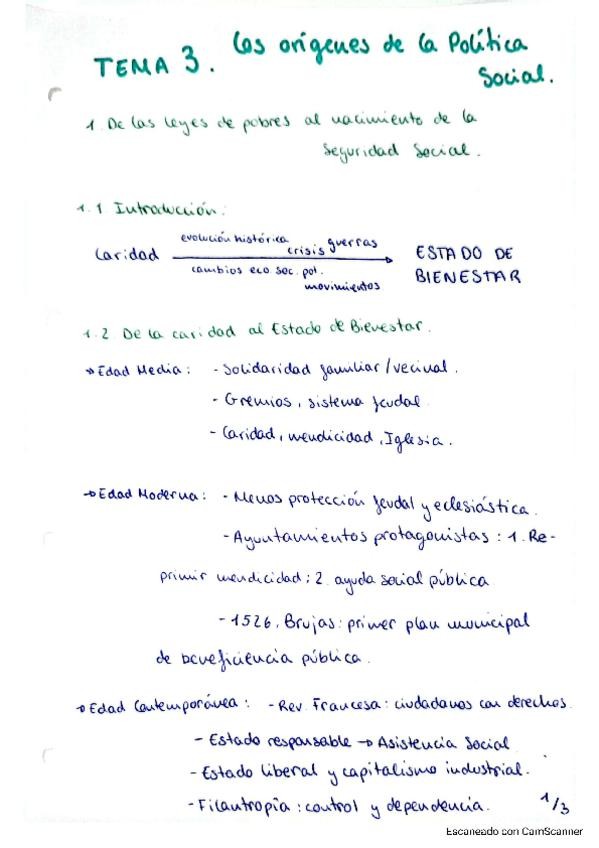 TEMA 3. Los orígenes de la Política
Social.
1. De las leyes de pobres al nacimiento de la
Seguridad Social.
1.1 Introducción:
evolución histórica crisis guerras
Caridad → ESTADO DE
BIENESTAR
cambios eco. soc. pol.
movimientos
1.2 De la caridad al Estado de Bienestar.
→ Edad Media: - Solidaridad familiar/vecinal.
- Gremios, sistema feudal
- Caridad, mendicidad, Iglesia.
→ Edad Moderna: - Menos protección feudal y eclesiástica.
- Ayuntamientos protagonistas: 1. Re-
primir mendicidad; 2. ayuda social pública
- 1526, Brujas: primer plan municipal
de beneficiencia pública.
→ Edad Contemporánea: - Rev. Francesa: ciudadanos con derechos.
- Estado responsable → Asistencia Social
- Estado liberal y capitalismo industrial.
- Filantropía: control y dependencia.
1/3
Escaneado con CamScanner